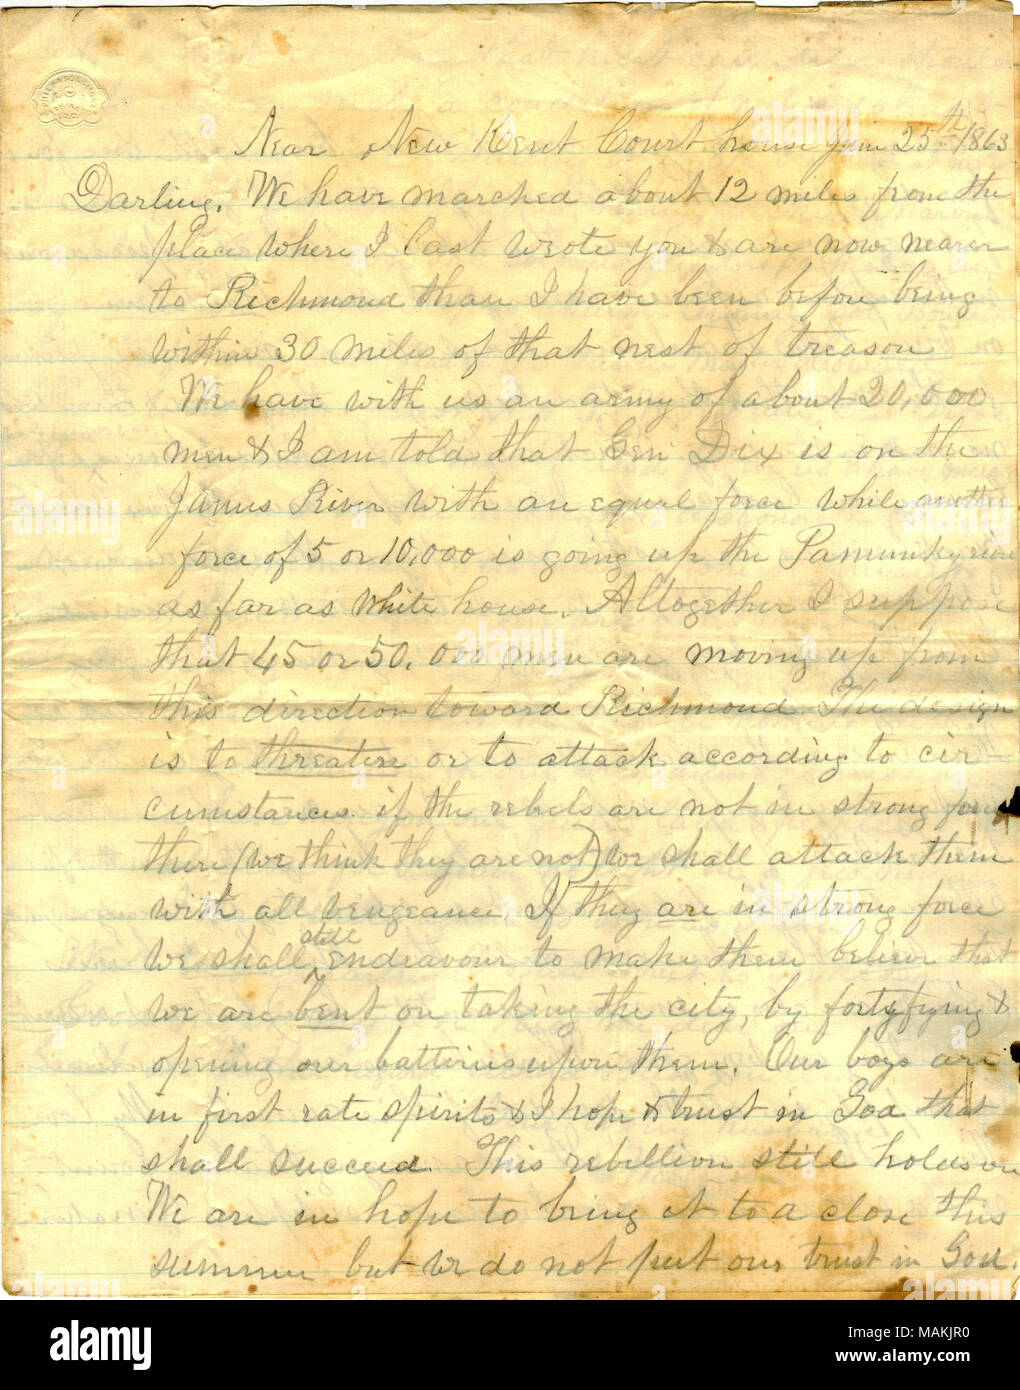 Near New Kent Court house June 25th 1863
Darling, We have marched about 12 miles from the
place where I last wrote you & are now nearer
to Richmond than I have been before being
within 30 miles of that nest of treason
We have with us an army of about 20,000
men & I am told that Gen Dix is on the
James River with an equal force while another
force of 5 or 10,000 is going up the Pamunky river
as far as White house. Altogether I suppose
that 45 or 50,000 men are moving up from
this direction toward Richmond. The design
is to threaten or to attack according to cir-
cumstances if the rebels are not in strong force
there (we think they are not) we shall attack them
with all vengeance. If they are in strong force
we shall still endeavour to make them believe that
we are bent on taking the city, by fortyfying &
opening our batteries upon them. Our boys are
in first rate spirits & I hope & trust in God that
shall succeed. This rebellion still holds on
We are in hope to bring it to a close this
summer but we do not put our trust in God.
alamy
Image ID: MAKJR0
www.alamy.com